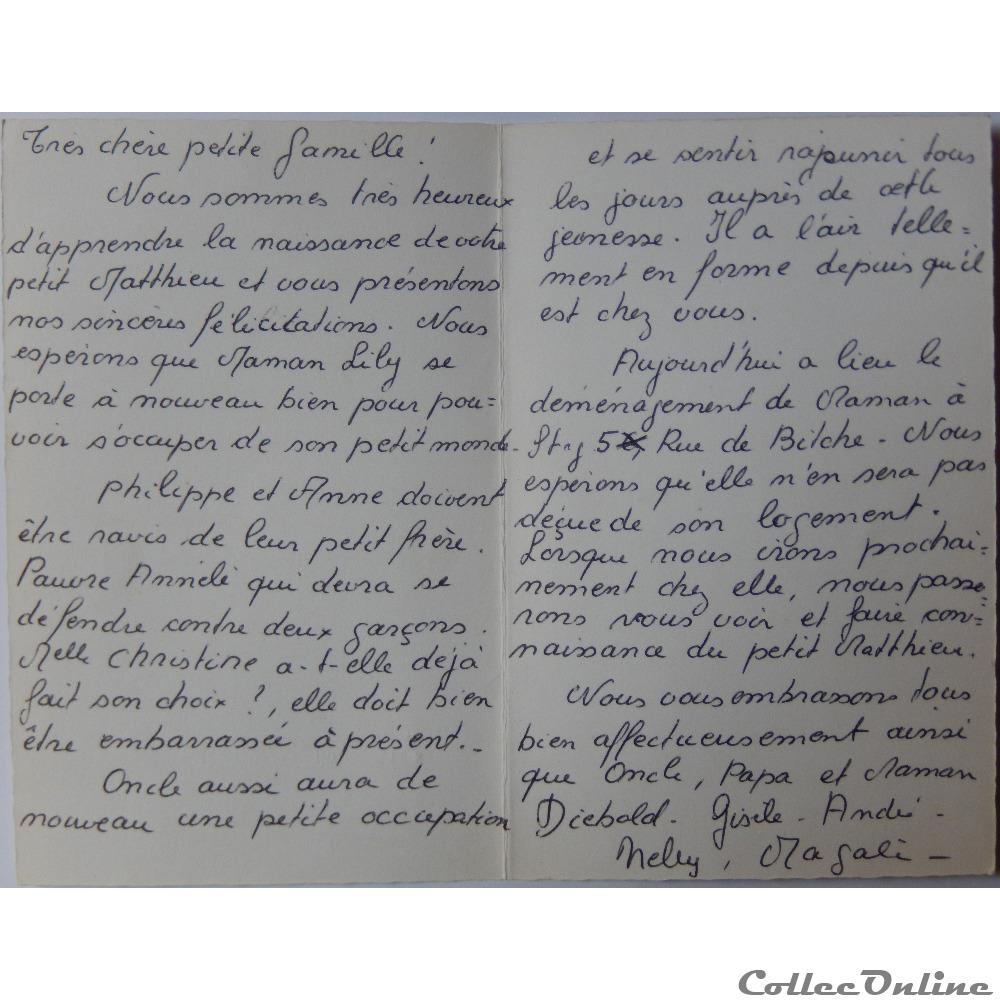 Très chère petite famille !
Nous sommes très heureux
d'apprendre la naissance de votre
petit Matthieu et vous présentons
nos sincères félicitations. Nous
esperons que Maman Lily se
porte à nouveau bien pour pou=
voir s'occuper de son petit monde.
Philippe et Anne doivent
être ravis de leur petit frère.
Pauvre Annele qui devra se
défendre contre deux garçons.
Melle Christine a-t-elle déjà
fait son choix ?, elle doit bien
être embarrassée à présent.-
Oncle aussi aura de
nouveau une petite occupation
et se sentir rajeunir tous
les jours auprès de cette
jeunesse. Il a l'air telle=
ment en forme depuis qu'il
est chez vous.
Aujourd'hui a lieu le
déménagement de Maman à
5 Rue de Bitche - Nous
esperons qu'elle n'en sera pas
déçue de son logement.
Lorsque nous irons prochai=
nement chez elle, nous passe=
rons vous voir et faire con=
naissance du petit Matthieu.
Nous vous embrassons tous
bien affectueusement ainsi
que Oncle, Papa et Maman
Diebold - Gisèle - André -
Nelly, Magali -
CollecOnline